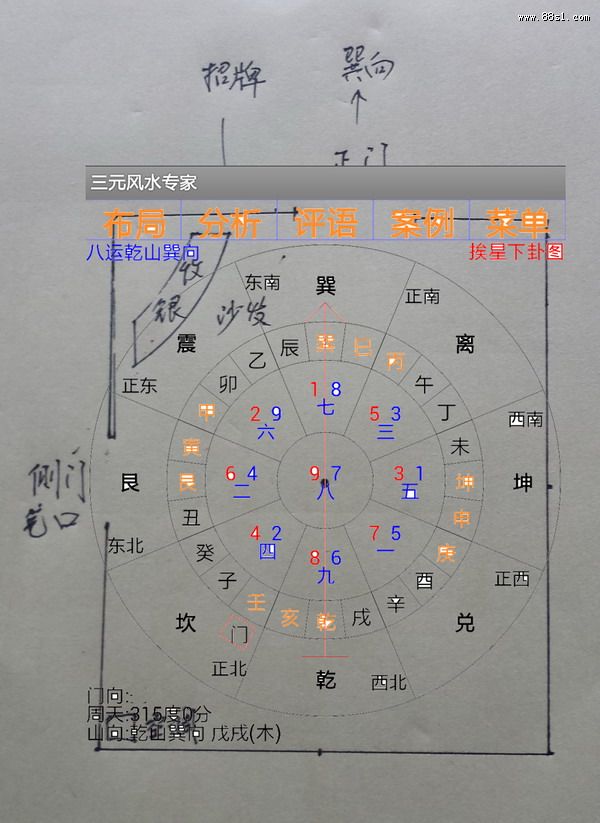 www.88s1.com
招牌
巽向
正门
三元风水专家
布局 分析 评语 案例 菜单
八运乾山巽向
挨星下卦图
收
银
沙发
东南
巽
正南
震
离
乙 辰 巽 巳 丙
正东
卯
午
甲
丁
1 8
七
2 9
六
5 3
三
西南
寅
未
侧门
艮
艮
6 4
二
9 7
八
3 1
五
坤
坤
宽口
丑
申
4 2
四
7 5
一
东北
癸
庚
8 6
九
正西
子
酉
壬 亥 乾 戌 辛
坎
门
兑
正北
乾
西北
门向:
周天:315度0分
山向:乾山巽向 戊戌(木)